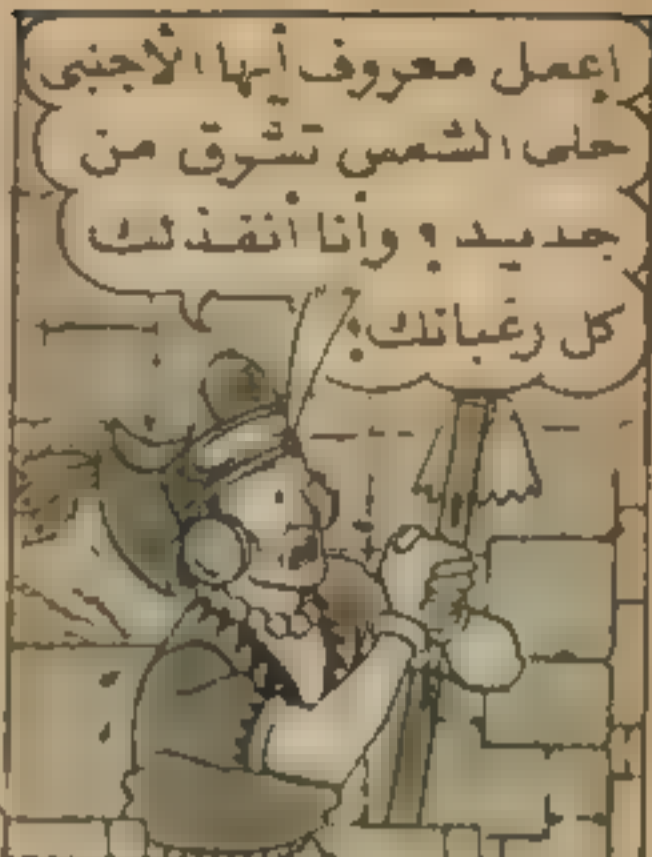 اعمل معروف أيها الأجنبى
خلى الشمس تشرق من
جديد ؟ وأنا أنفذ لك
كل رغباتك